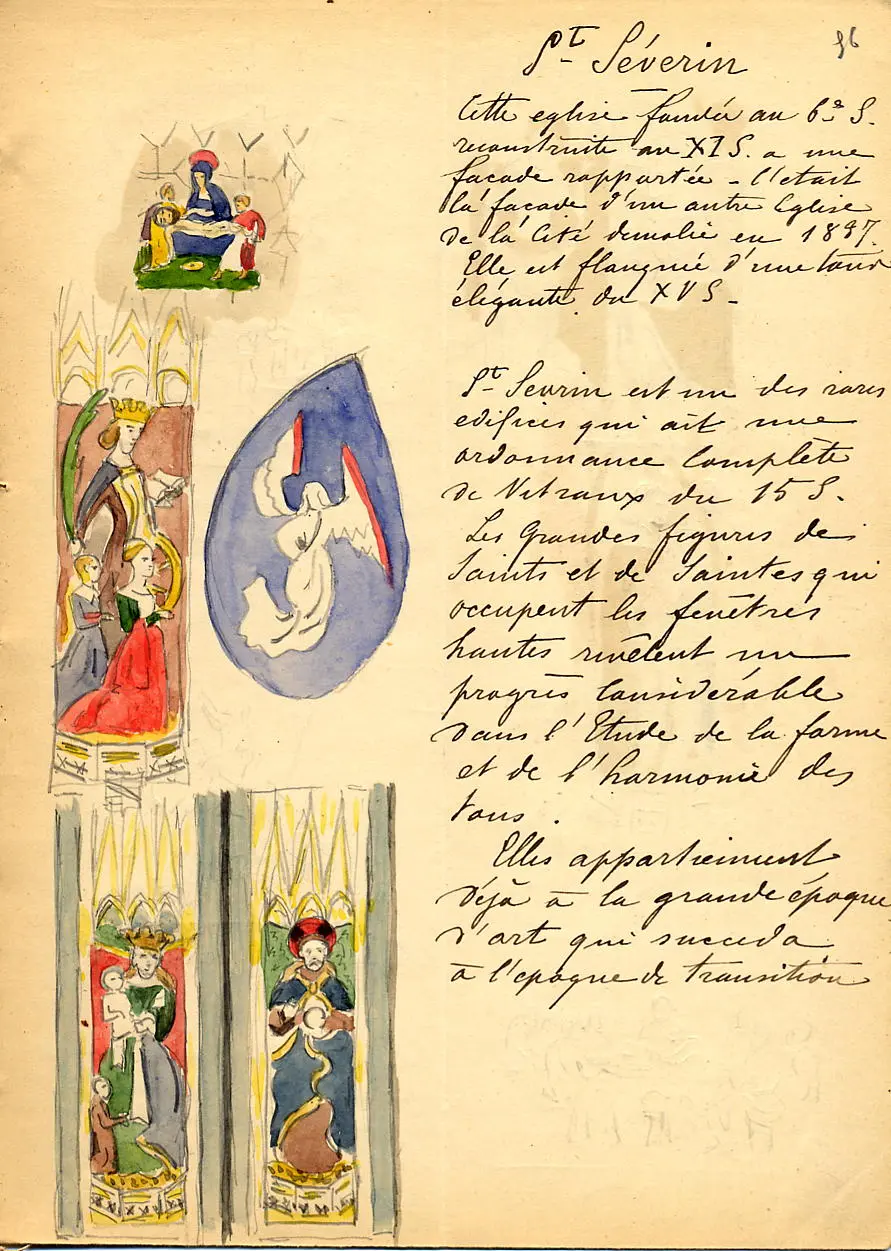 56
St Séverin
Cette eglise fondée au 6e S.
reconstruite au XI S. a une
façade rapportée - C'était
la façade d'un autre Eglise
de la Cité démolie en 1837.
Elle est flanquée d'une tour
élégante du XV S -
St Sevrin est un des rares
edifices qui ait une
ordonnance Complète
de Vitraux du 15 S.
Les Grandes figures de
Saints et de Saintes qui
occupent les fenêtres
hautes revêlent un
progrès Considérable
dans l'Etude de la forme
et de l'harmonie des
tons.
Elles appartiennent
déjà à la grande époque
d'art qui succeda
à l'epoque de transition